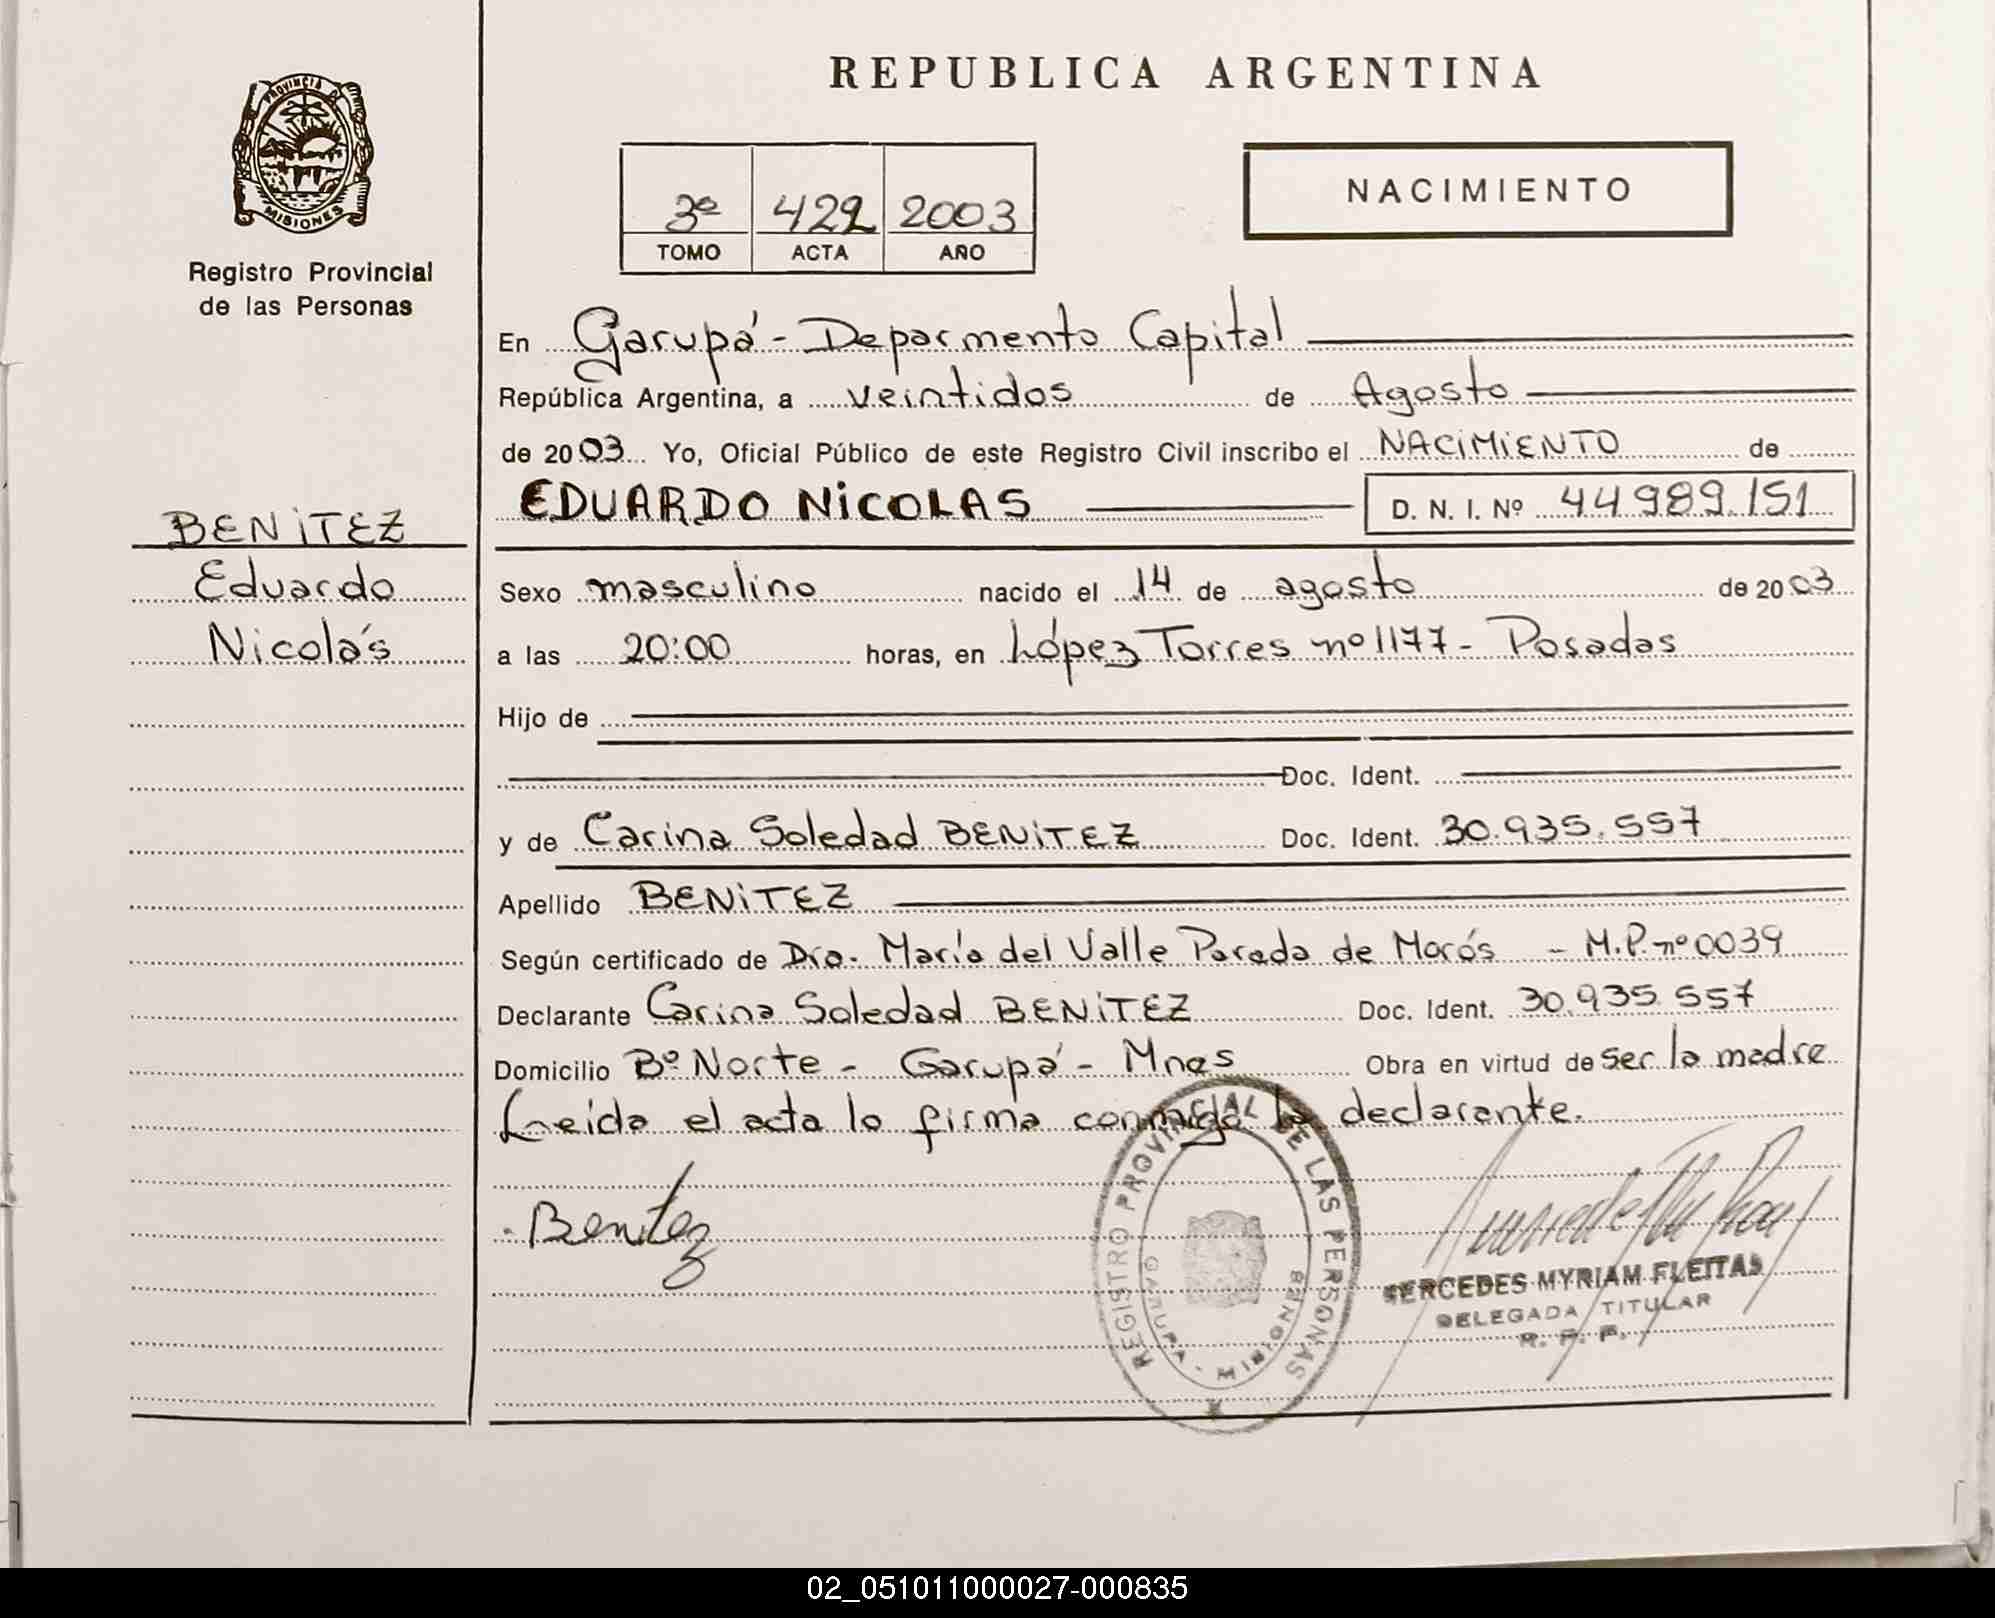 REPUBLICA ARGENTINA
PROVINCIA DE
MISIONES
Registro Provincial
de las Personas
3º 422 2003
TOMO ACTA AÑO
NACIMIENTO
BENiTEZ
Eduardo
Nicolás
En Garupá - Deparmento Capital
República Argentina, a veintidos de Agosto
de 2003 Yo, Oficial Público de este Registro Civil inscribo el NACiMiENTO de
EDUARDO NiCOLAS D. N. I. Nº 44989151
Sexo masculino nacido el 14 de agosto de 2003
a las 20:00 horas, en López Torres nº 1177 - Posadas
Hijo de
Doc. Ident.
y de Carina Soledad BENiTEZ Doc. Ident. 30.935.557
Apellido BENiTEZ
Según certificado de Dra. María del Valle Parada de Marós - M.P. nº 0039
Declarante Carina Soledad BENiTEZ Doc. Ident. 30.935.557
Domicilio Bº Norte - Garupá - Mnes Obra en virtud de ser la madre
Leída el acta la firma conmigo la declarante.
Benitez
REGISTRO PROVINCIAL DE LAS PERSONAS
GARUPA - MISIONES
MERCEDES MYRIAM FLEITAS
DELEGADA TITULAR
R. P. P.
02_051011000027-000835